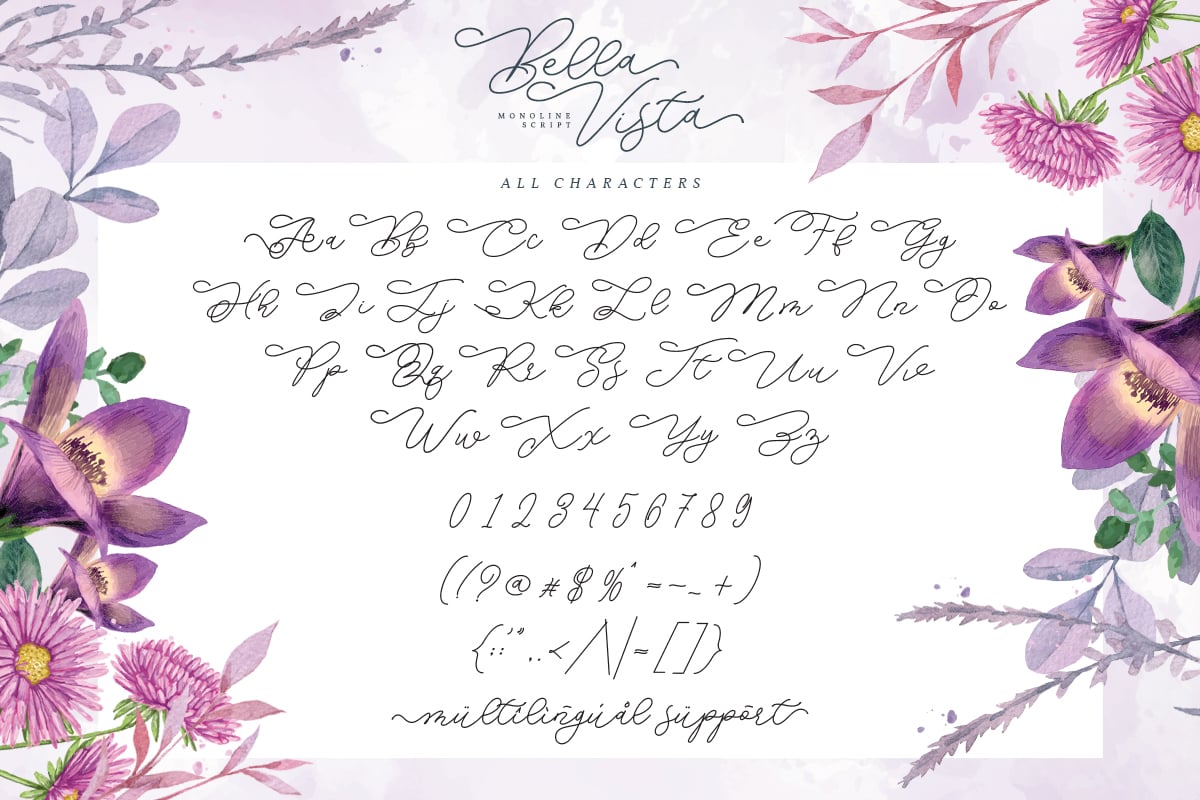 Bella
Vista
MONOLINE
SCRIPT
ALL CHARACTERS
Aa Bb Cc Dd Ee Ff Gg
Hh Ii Jj Kk Ll Mm Nn Oo
Pp Qq Rr Ss Tt Uu Vv
Ww Xx Yy Zz
0 1 2 3 4 5 6 7 8 9
(!?@#$%^=–_+)
{;:'",.</\|~[]}
mültílïñgúàl süppört